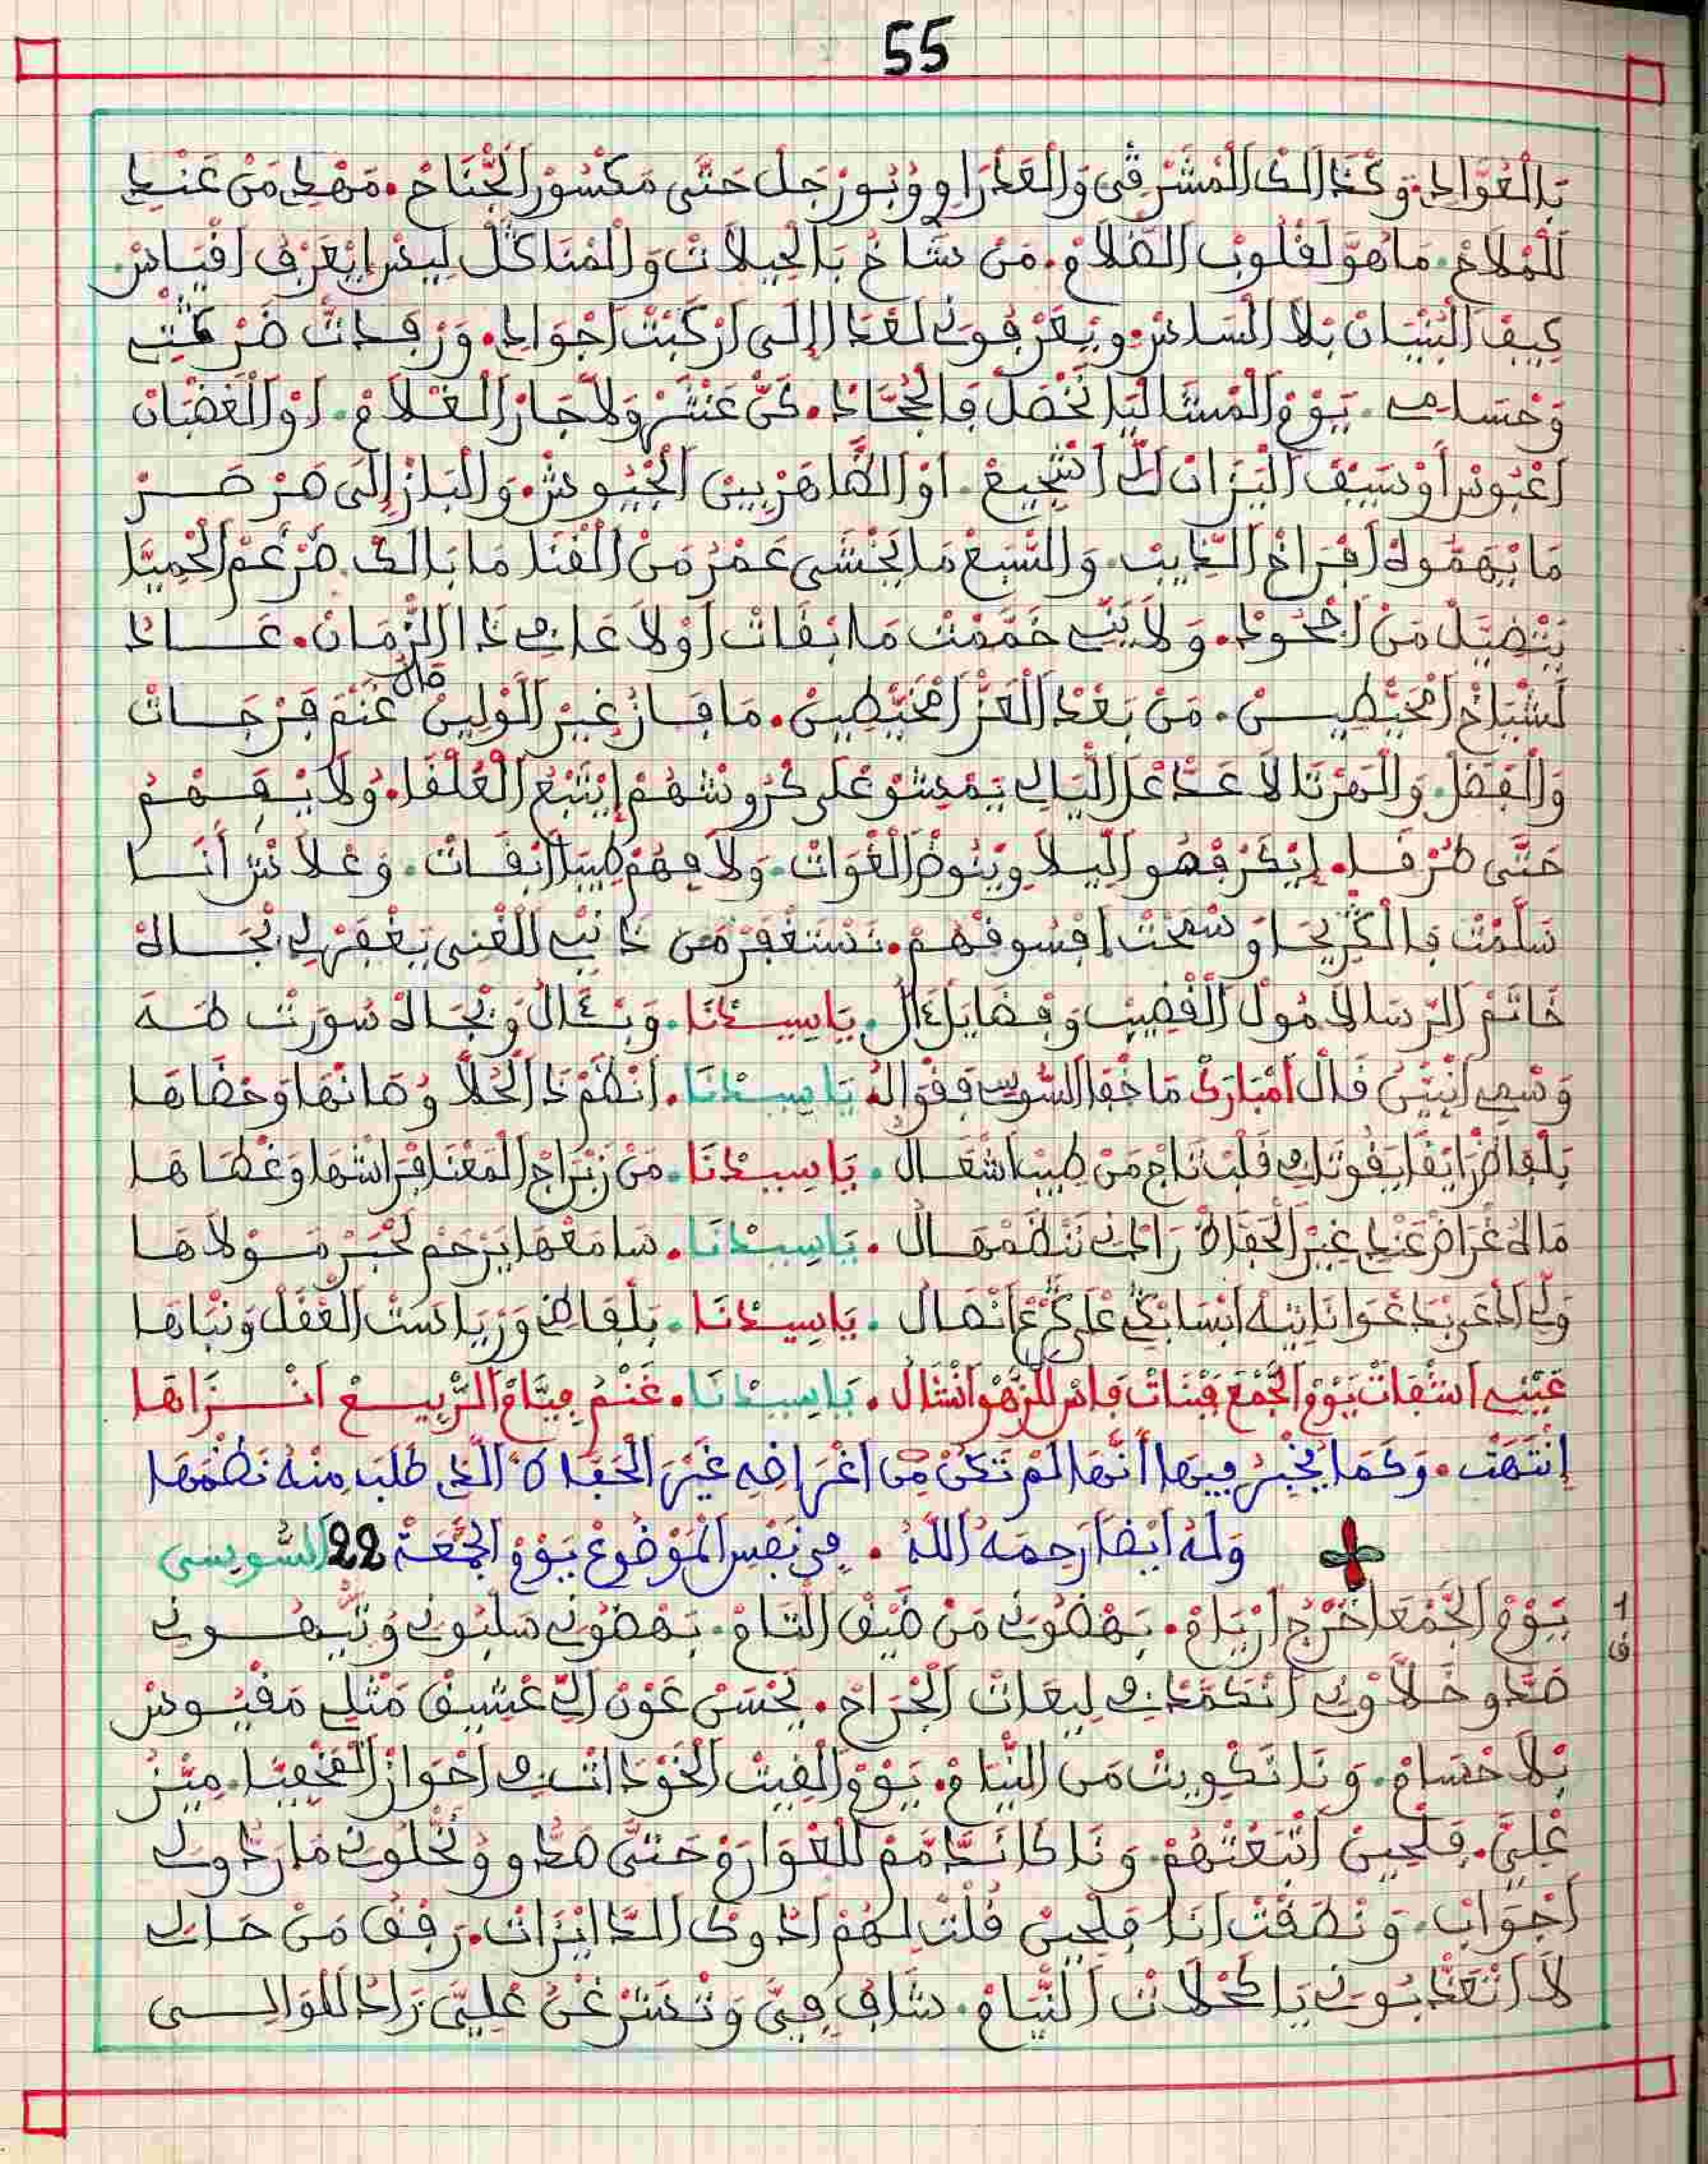 55
بَالْعُوَّادِ. وَكْذَالَكْ الْمَشَرْقِي وَالْعَذْرَاوِ وُبُورَجْلَ حَتَّى مَكْسُورْ الْجْنَاحْ. مَهْدِ مَنْ عَنْدِ
لَلْمْلَاحْ. مَاهُوَّ لَقْلُوبْ الظْلَامْ. مَنْ شَاخْ بَالْحِيلَاتْ وَالْمْنَاكَلْ لِيسْ إِيعَرْفْ اقْيَاسْ
كِيفْ الْبْنْيَانْ بْلَا السَاسْ. وِيعَرْفُونِي لَعْدَا إِلَى ارْكَبْتْ اجْوَادِ. وَرْفَدْتْ
وَحْسَامِي. يَوْمْ الْمْشَالْيَا نَحْصَلْ فَالْحْجَّادْ. كَنْ عَنْتْرْ وَلَا جَارْ الْغْلَامْ. اوْ الْغَضْبَانْ
اعْبُوسْ أَوْ سَيْفْ الْيَزَانْ الْشْجِيعْ. اوْ الظَاهَرْ بِينْ الْجْيُوشْ. وَالْبَازْ إِلَى صَرْصَرْ
مَايْهَمُّوهْ افْرَاخْ الذِّيبْ. وَالسْبَعْ مَا يَخْشَى عَمْرُ مَنْ الْفْنَا مَا بَالَكْ ضَرْغَمْ الْحْمِيَّا
وَلَا بِيَّ خَمَّمْتْ مَابْقَاتْ اوْلَاعَا فِي ذَا الزْمَانْ. عَادْ
لَشْيَاخْ امْخَيْطِيسْ. مَنْ بَعْدْ الْعَزّ امْخَيْطِينْ. مَا فَازْ غِيرْ الَوْلِينْ قَالْ غَنْمْ فَرْجَاتْ
وَالْفْضَلْ. وَالْهَرْتَلَا عَدَّ عْلَ اللْيَالِي يَمْشُو عْلَى كْرُوشْهُمْ إِيتْبَعْ الْعُلْفَا. وُلَا يْفَهَمْ
حَتَّى طُرْفَا. إِيكَرْفْصُو اللِّيلَا وِينُوضْ الْغْوَاتْ. وَلَا فِهُمْ طِيبَا انْفَاتْ. وَعْلَاشْ أَنَا
سَلَّمْتْ فَالْكْرِيحَا وَسْمَحْتْ افْسُوقْهُمْ. نَسْتَغْفَرْ مَنْ ذَانْبِي الْغْنِي يَغْفَرْ لِي بْجَاهْ
خَاتَمْ الرْسَالَا مُولْ الْقْضِيبْ وَفْضَايَلْ آلُ. يَاسِيدْنَا. وَبْـآلُ وَبْجَاهْ سُورَتْ طَهَ
وَسْمِي انْبَيَّنُ قَالْ امْبَارَكْ مَا خْفَى السُّوسِي فَقْوَالُ يَاسِيدْنَا. انْظَمْ ذَا الْحُلَّا وُصَانْهَا وَحْضَاهَا
بَلْفَاظْ رَايْقَا يَقُوتَكْ فِي قَلْبْ تَاجْ مَنْ طِيبْ اشْعَالُ. يَاسِيدْنَا. مَنْ زَبْرَاجْ الْمَعْنَا فْرَاشْهَا وَغْطَاهَا
مَالُهْ غْرَاضْ عَنْدِ غِيرْ الْحَفَّاظْ رَادْنِي نَنْظَمْهَالُ. يَاسِيدْنَا. سَامَعْهَا يَرْحَمْ لَحْبَرْ مَوْلَاهَا
وَلِّي ادْعَى بَدَعْوَا نَايَبُهْ انْسَابْكُ عْلَى كُرْعْ انْصَالُ. يَاسِيدْنَا. بَلْفَاظِي وَزْيَادَتْ الْعْقَلْ وَنْبَاهَا
غَيْبِي اشْفَاتْ يَوْمْ الْجَمْعَ فْبْنَاتْ فَاسْ لَلزْهُو انْشَالُ. يَاسِيدْنَا. غَنْمُ فِيَّامْ الرْبِيعْ انْزَاهَا
اِنْتَهَتْ. وَكَمَا يُخْبِرُ فِيهَا أَنَّهَا لَمْ تَكُنْ مِنْ اَغْرَاضِهِ غَيْرَ الْحَفَّاظْ الَّذِي طَلَبَ مِنْهُ نَظْمَهَا
وَلَهُ اَيْضاً رَحِمَهُ اللَّهُ. فِي نَفْسِ الْمَوْضُوعِ يَوْمُ الْجُمُعَةْ 22 السُّوِيسِي
يَوْمْ الْجَمْعَا خَرْجُ ارْيَامْ. بَهْضُونِي مَنْ ضِيقْ اللْثَامْ. بَهْضُونِي سَلْبُونِي وَتَيْهُونِي
1
ق
صَدُّو خَلَّاوْنِي انْكَمَّدْ فِي لِيعَاتْ الْجْرَاحْ. يَحْسَنْ عَوْنْ الِّي عْشِيقْ مَثْلِي مَقْيُوسْ
بْلَا حْسَامْ. وَنَا نَكْوِيتْ مَنْ النْيَامْ. يَوْمْ الْقِيتْ الْخَوْدَاتْ فِي احْوَازْ مِيزْ
عْلِيَّ. فَلْحِينْ اتْبَعْتْهُمْ. وَنَا كَانَدَّمَّمْ لَلْعْوَارَمْ حَتَّى صَدُّو وُخَلُّونِي مَا رَدُّو لِي
اجْوَابْ. وَنْطَقْتْ انَا فَلْحِينْ قُلْتْ لَهُمْ ادُوكْ الدَّايْزَاتْ. رَفْقُ مَنْ حَالِي
لَا اتْعَذْبُونِي يَا كَحْلَاتْ النْيَامْ. شَافْ فِيَّ وَتْمَسْرْغَنْ عْلِيَّ زَادْ لَلْوَالْسِي